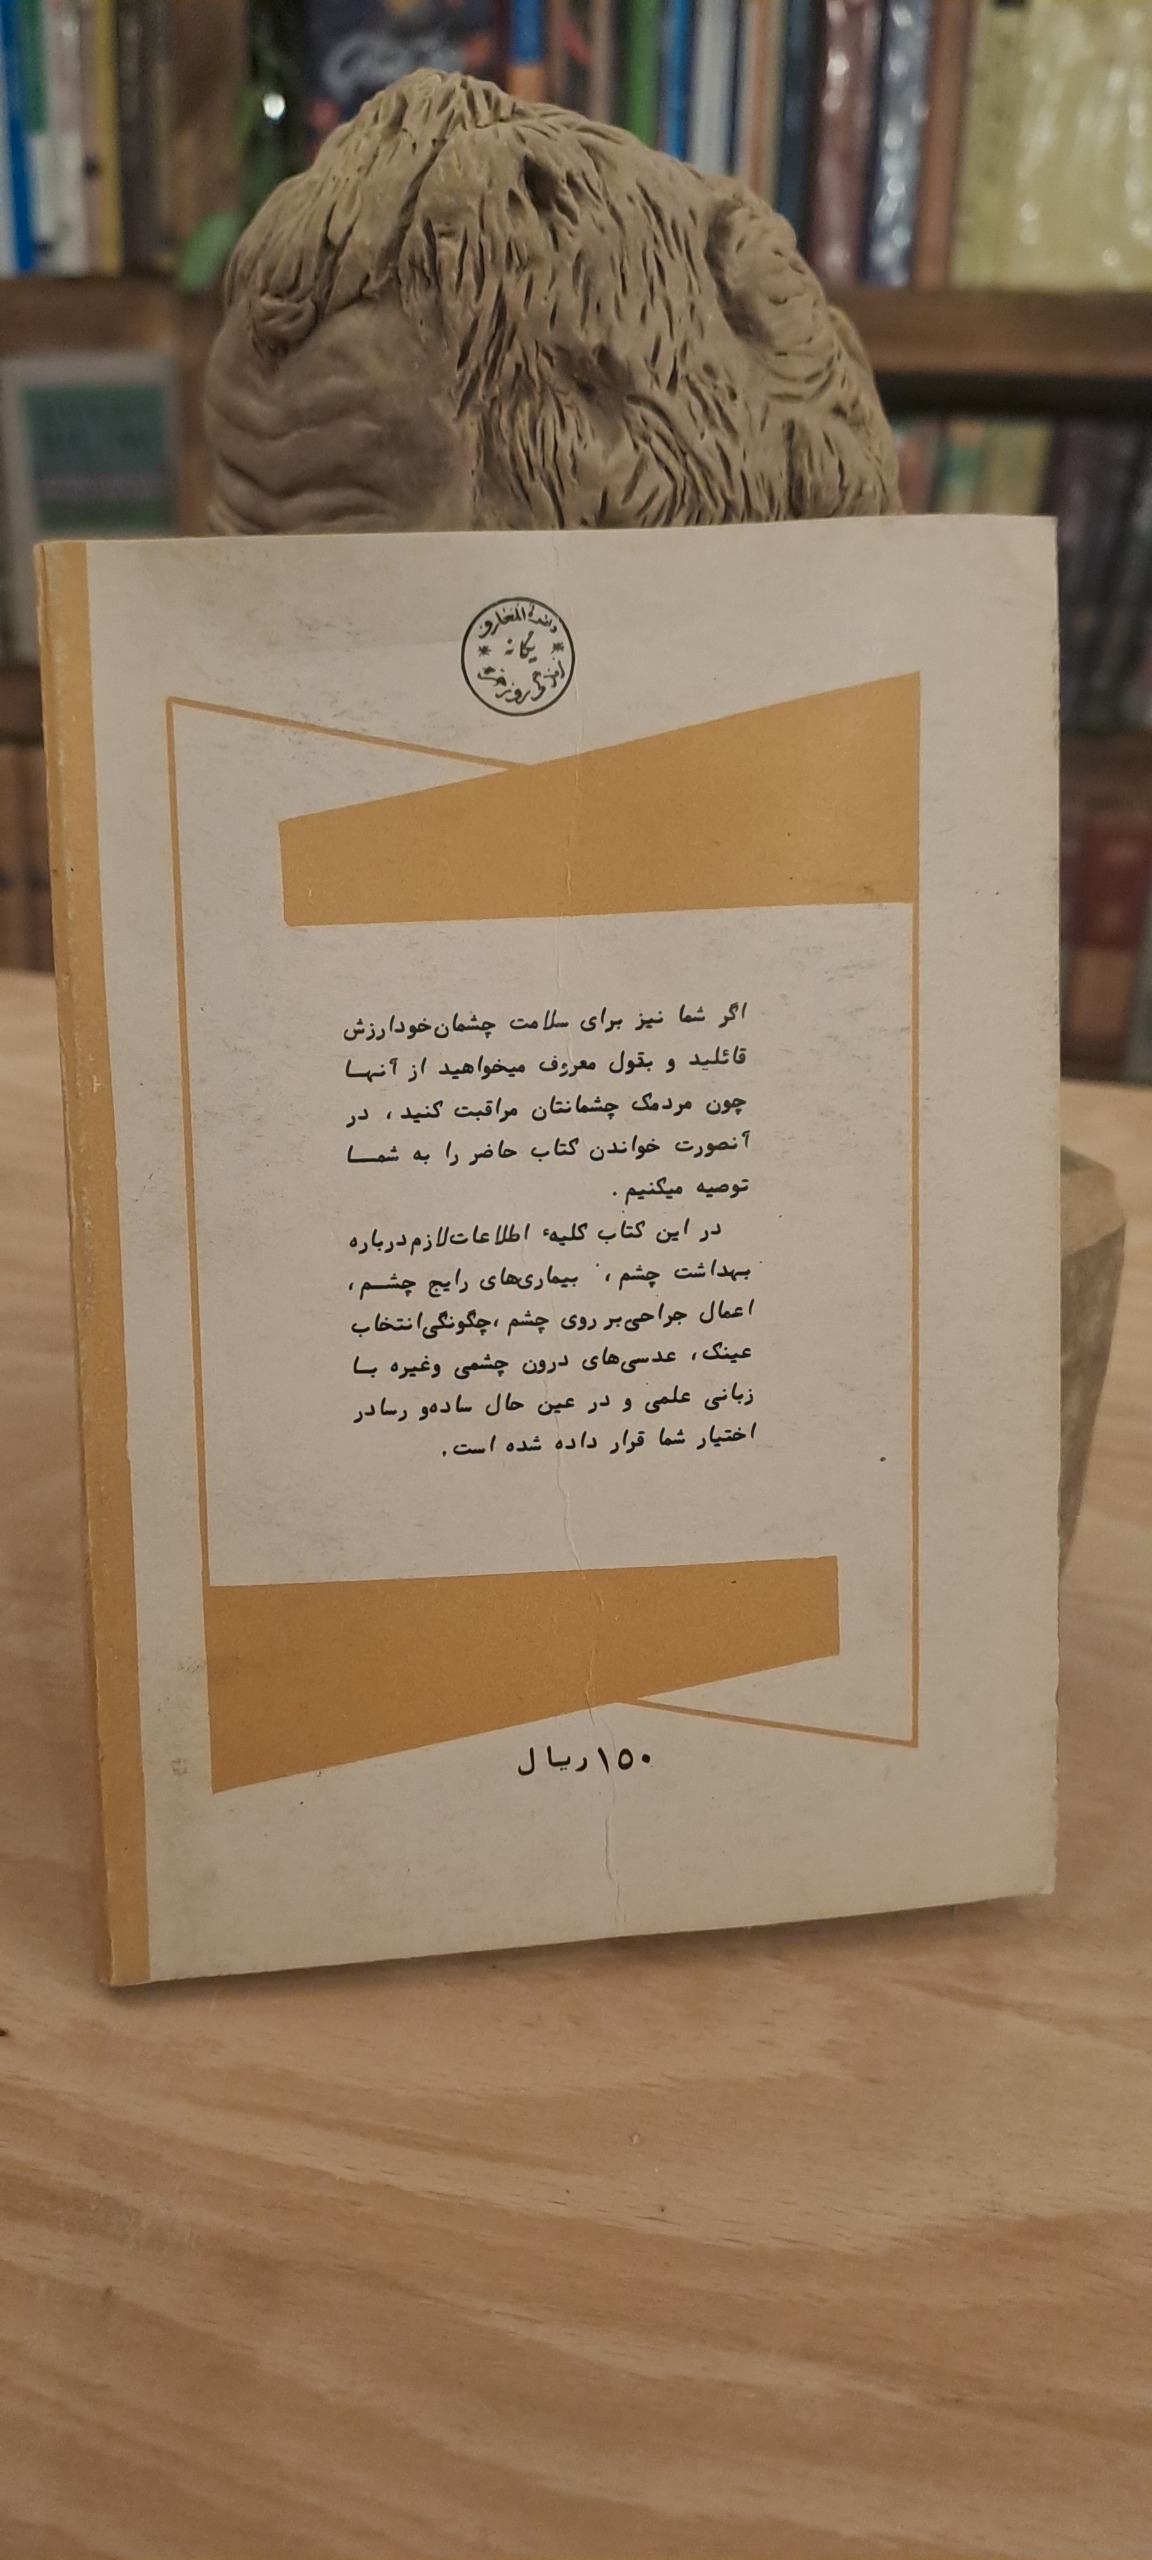 دائرة المعارف
یگانه
اگر شما نیز برای سلامت چشمان خود ارزش
قائلید و بقول معروف میخواهید از آنهـا
چون مردمک چشمانتان مراقبت کنید، در
آنصورت خواندن کتاب حاضر را به شمـا
توصیه میکنیم.
در این کتاب کلیهٔ اطلاعات لازم درباره
بهداشت چشم، بیماری‌های رایج چشـم،
اعمال جراحی بر روی چشم، چگونگی انتخاب
عینک، عدسی‌های درون چشمی وغیره بـا
زبانی علمی و در عین حال ساده و رسا در
اختیار شما قرار داده شده است.
۱۵۰ ریال